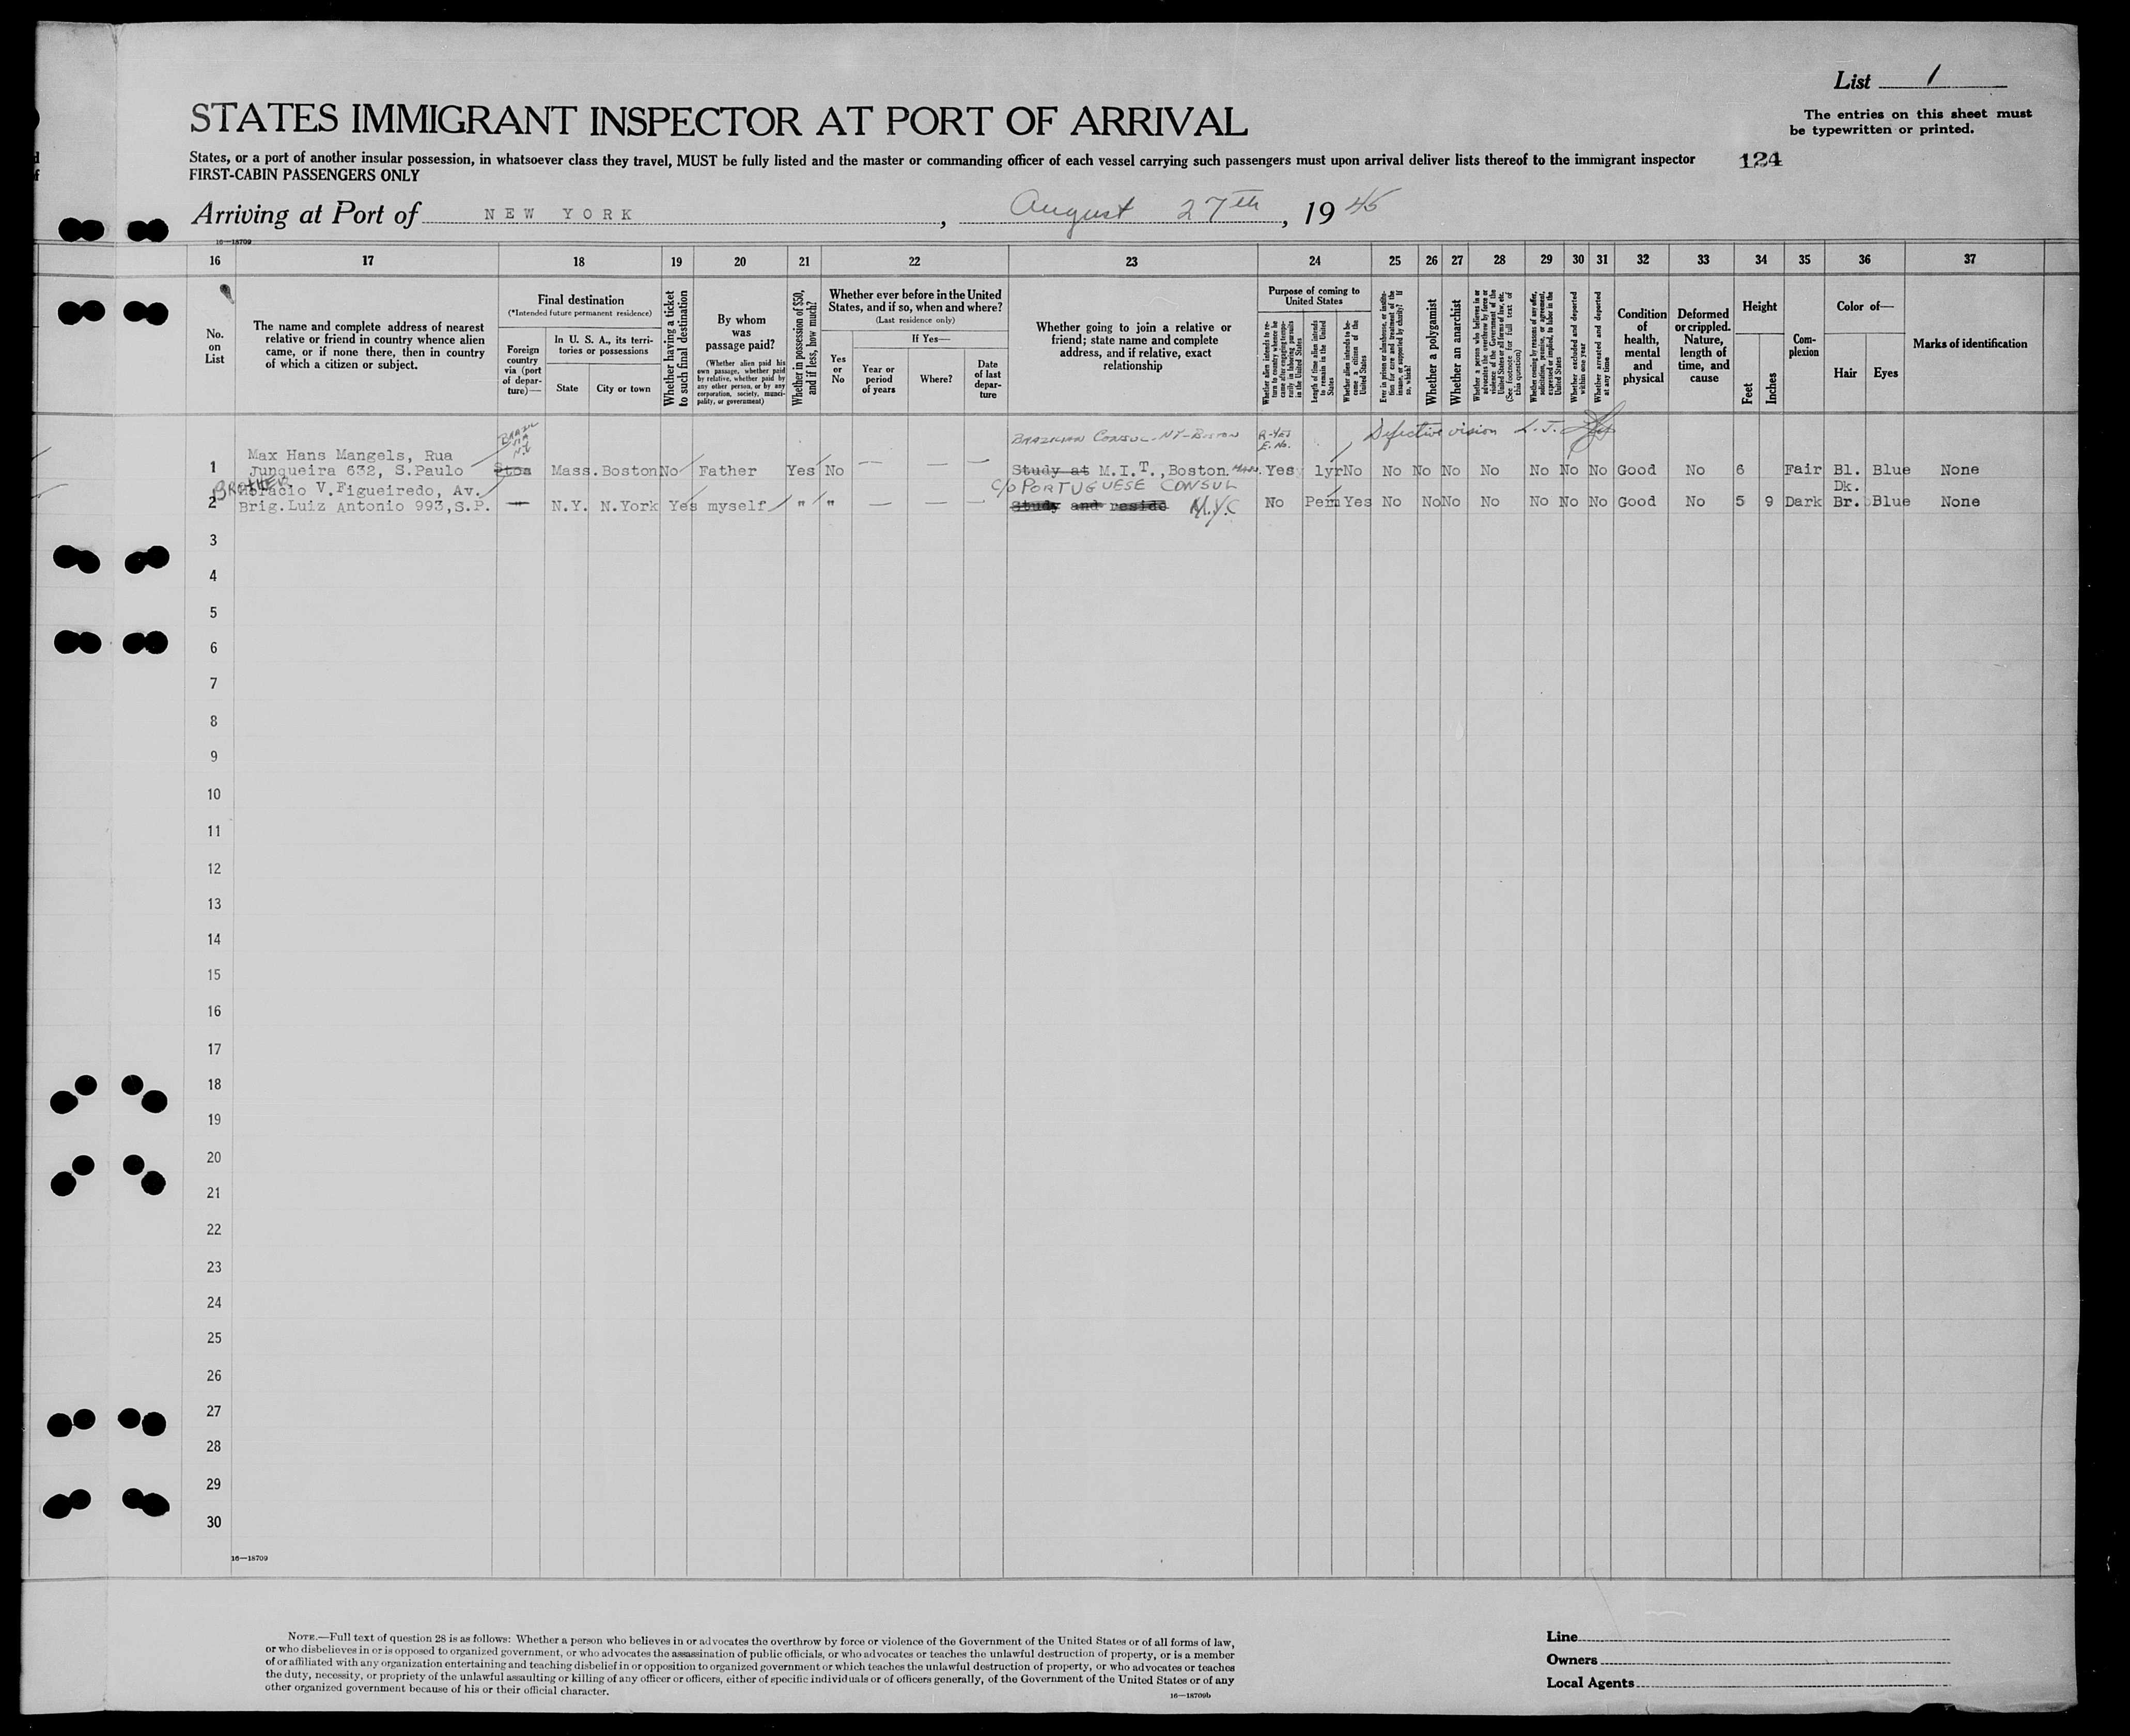 List 1
The entries on this sheet must
be typewritten or printed.
STATES IMMIGRANT INSPECTOR AT PORT OF ARRIVAL
States, or a port of another insular possession, in whatsoever class they travel, MUST be fully listed and the master or commanding officer of each vessel carrying such passengers must upon arrival deliver lists thereof to the immigrant inspector
124
FIRST-CABIN PASSENGERS ONLY
Arriving at Port of NEW YORK, August 27th, 1945
16—18709
16 17 18 19 20 21 22 23 24 25 26 27 28 29 30 31 32 33 34 35 36 37
No.
on
List
The name and complete address of nearest
relative or friend in country whence alien
came, or if none there, then in country
of which a citizen or subject.
Final destination
(*Intended future permanent residence)
Foreign
country
via (port
of depar-
ture)—
In U. S. A., its terri-
tories or possessions
State
City or town
Whether having a ticket
to such final destination
By whom
was
passage paid?
(Whether alien paid his
own passage, whether paid
by relative, whether paid by
any other person, or by any
corporation, society, munici-
pality, or government)
Whether in possession of $50,
and if less, how much?
Whether ever before in the United
States, and if so, when and where?
(Last residence only)
Yes
or
No
If Yes—
Year or
period
of years
Where?
Date
of last
depar-
ture
Whether going to join a relative or
friend; state name and complete
address, and if relative, exact
relationship
Purpose of coming to
United States
Whether alien intends to re-
turn to country whence he
came after engaging tempo-
rarily in laboring pursuits
in the United States
Length of time alien intends
to remain in the United
States
Whether alien intends to be-
come a citizen of the
United States
Ever in prison or almshouse, or institu-
tion for care and treatment of the
insane, or supported by charity? If
so, which?
Whether a polygamist
Whether an anarchist
Whether a person who believes in or
advocates the overthrow by force or
violence of the Government of the
United States or all forms of law, etc.
(See footnote for full text of
this question)
Whether coming by reasons of any offer,
solicitation, promise, or agreement,
expressed or implied, to labor in the
United States
Whether excluded and deported
within one year
Whether arrested and deported
at any time
Condition
of
health,
mental
and
physical
Deformed
or crippled.
Nature,
length of
time, and
cause
Height
Feet
Inches
Com-
plexion
Color of—
Hair
Eyes
Marks of identification
BRAZIL
VIA
N.Y.
BRAZILIAN CONSUL-NY-BOSTON
R-YES
E.NO.
Defective vision
Max Hans Mangels, Rua
1 Junqueira 632, S.Paulo Stoa Mass. Boston No Father Yes No — — — Study at M.I.T., Boston. Mass. Yes 1yr No No No No No No No No Good No 6 Fair Bl. Blue None
BROTHER
Horacio V.Figueiredo, Av.
c/o PORTUGUESE CONSUL
Dk.
2 Brig.Luiz Antonio 993,S.P. — N.Y. N.York Yes myself " " — — — Study and reside N.Y.C No Perm Yes No No No No No No No Good No 5 9 Dark Br. Blue None
3
4
5
6
7
8
9
10
11
12
13
14
15
16
17
18
19
20
21
22
23
24
25
26
27
28
29
30
16—18709
NOTE.—Full text of question 28 is as follows: Whether a person who believes in or advocates the overthrow by force or violence of the Government of the United States or of all forms of law,
or who disbelieves in or is opposed to organized government, or who advocates the assassination of public officials, or who advocates or teaches the unlawful destruction of property, or is a member
of or affiliated with any organization entertaining and teaching disbelief in or opposition to organized government or which teaches the unlawful destruction of property, or who advocates or teaches
the duty, necessity, or propriety of the unlawful assaulting or killing of any officer or officers, either of specific individuals or of officers generally, of the Government of the United States or of any
other organized government because of his or their official character.
16—18709b
Line
Owners
Local Agents